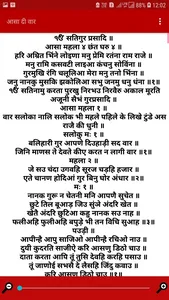 12:02
आसा दी वार
ੴ सतिगुर प्रसादि ॥
आसा महला ४ छंत घरु ४ ॥
हरि अम्रित भिंने लोइणा मनु प्रेमि रतंना राम राजे ॥
मनु रामि कसवटी लाइआ कंचनु सोविंना ॥
गुरमुखि रंगि चलूलिआ मेरा मनु तनो भिंना ॥
जनु नानकु मुसकि झकोलिआ सभु जनमु धनु धंना ॥१॥
ੴ सतिनामु करता पुरखु निरभउ निरवैरु अकाल मूरति अजूनी सैभं गुरप्रसादि ॥
आसा महला १ ॥
वार सलोका नालि सलोक भी महले पहिले के लिखे टुंडे अस राजे की धुनी ॥
सलोकु मः १ ॥
बलिहारी गुर आपणे दिउहाड़ी सद वार ॥
जिनि माणस ते देवते कीए करत न लागी वार ॥१॥
महला २ ॥
जे सउ चंदा उगवहि सूरज चड़हि हजार ॥
एते चानण होदिआं गुर बिनु घोर अंधार ॥२॥
मः १ ॥
नानक गुरू न चेतनी मनि आपणै सुचेत ॥
छुटे तिल बूआड़ जिउ सुंञे अंदरि खेत ॥
खेतै अंदरि छुटिआ कहु नानक सउ नाह ॥
फलीअहि फुलीअहि बपुड़े भी तन विचि सुआह ॥३॥
पउड़ी ॥
आपीन्है आपु साजिओ आपीन्है रचिओ नाउ ॥
दुयी कुदरति साजीऐ करि आसणु डिठो चाउ ॥
दाता करता आपि तूं तुसि देवहि करहि पसाउ ॥
तूं जाणोई सभसै दे लैसहि जिंदु कवाउ ॥
करि आसणु डिठो चाउ ॥१॥